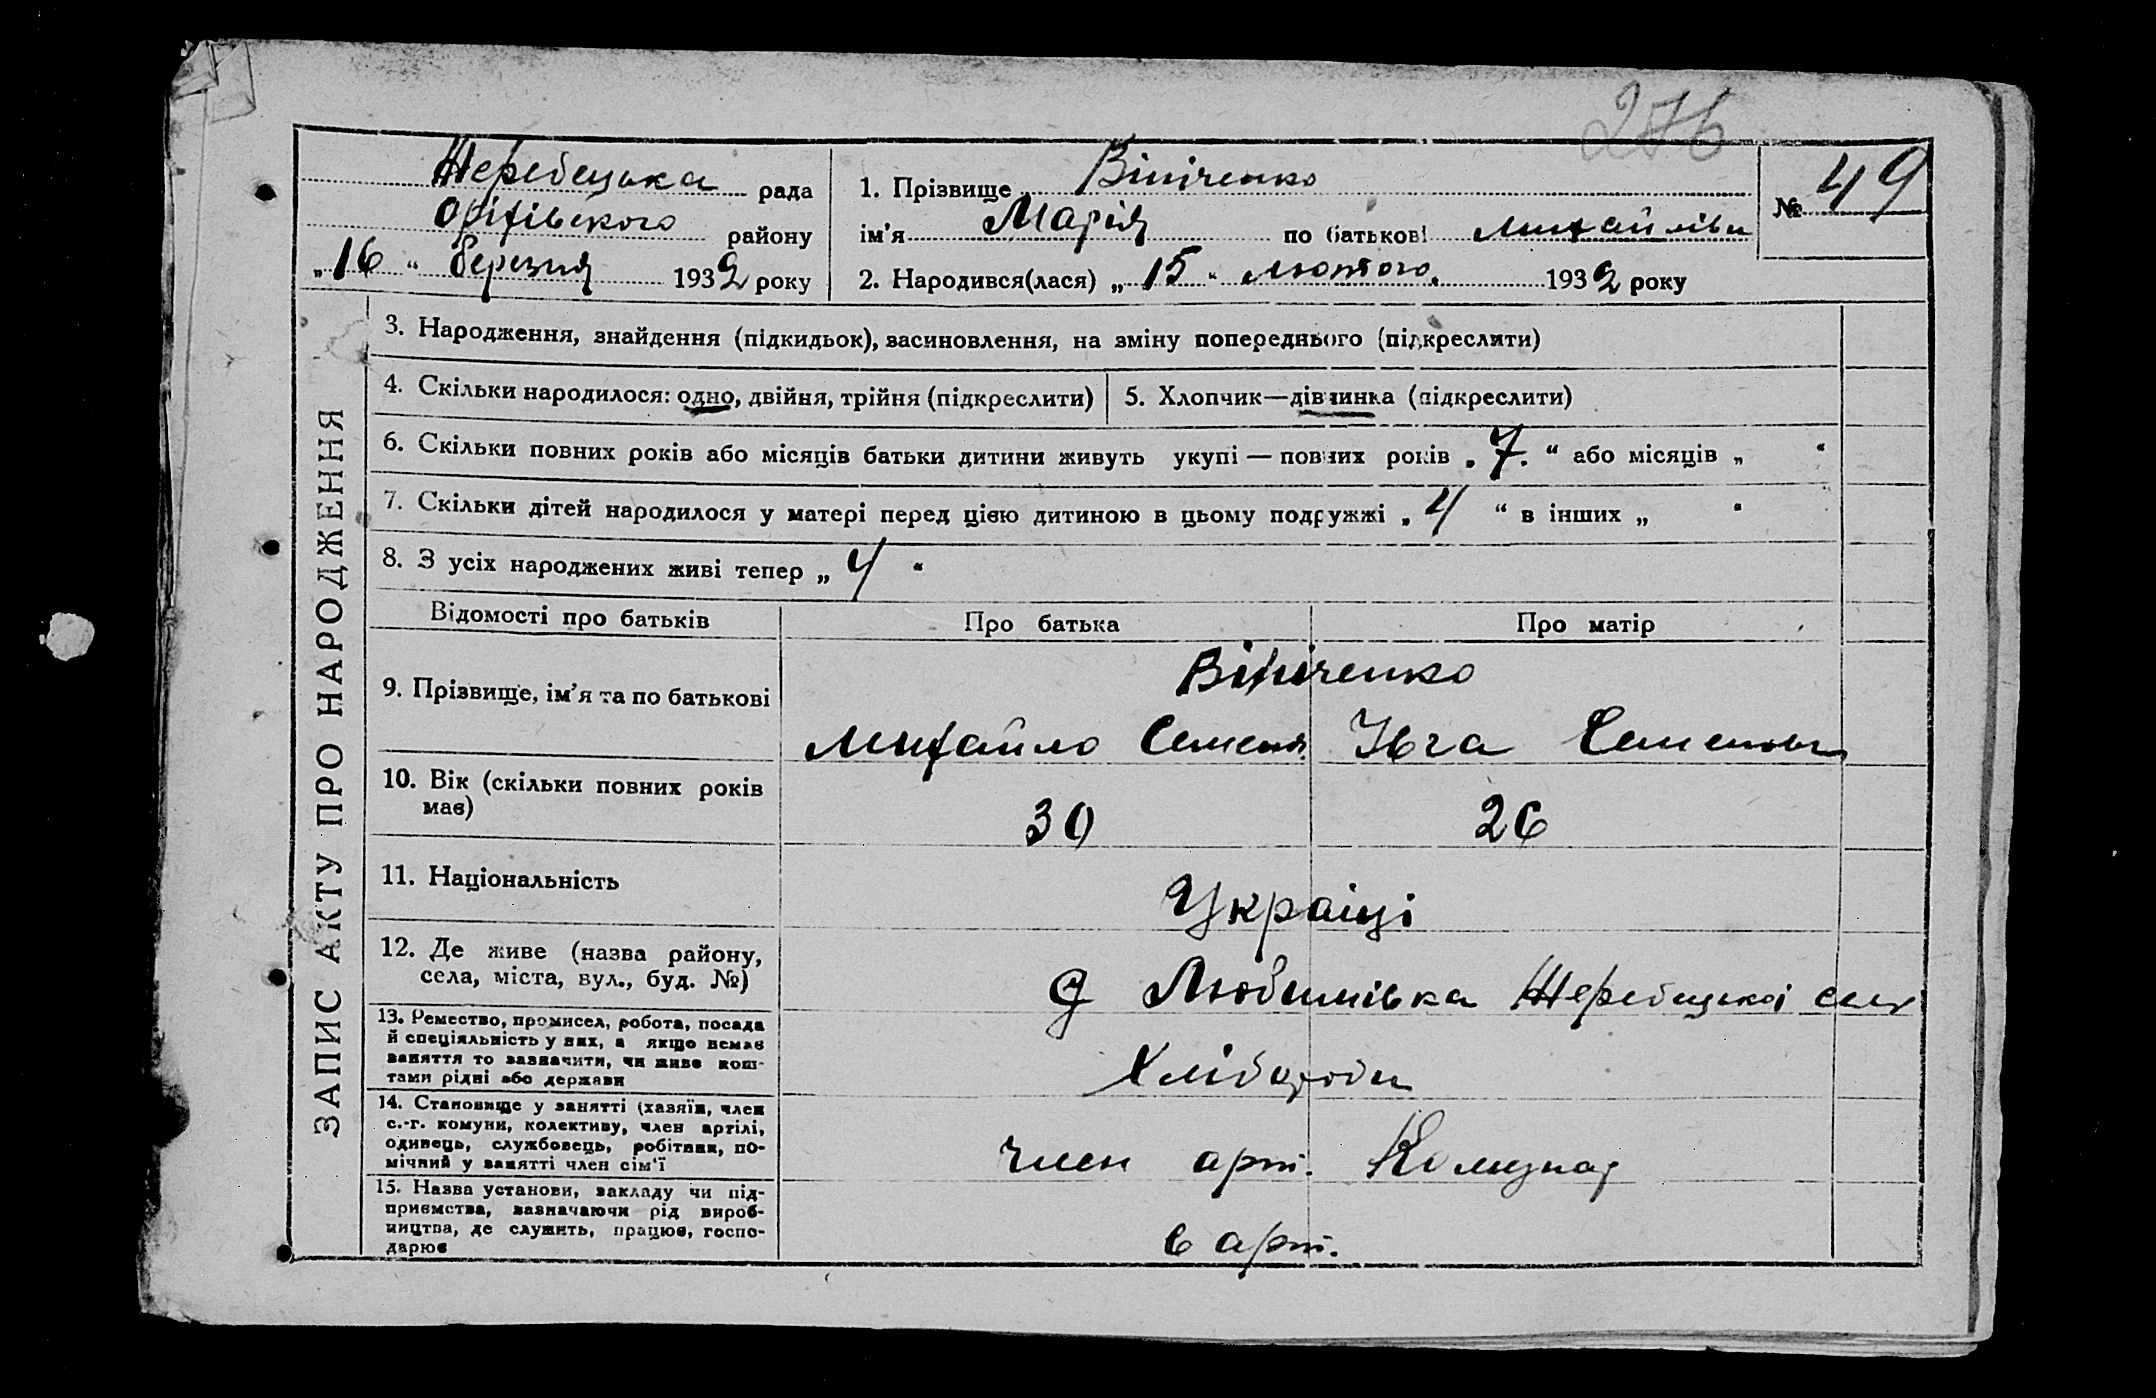 276
Жеребецька рада
Оріхівського району
„16“ березня 1932 року
1. Прізвище Вініченко
ім’я Марія по батькові Михайлівн
2. Народився(лася) „15“ лютого 1932 року
№ 49
ЗАПИС АКТУ ПРО НАРОДЖЕННЯ
3. Народження, знайдення (підкидьок), засиновлення, на зміну попереднього (підкреслити)
4. Скільки народилося: одно, двійня, трійня (підкреслити)
5. Хлопчик—дівчинка (підкреслити)
6. Скільки повних років або місяців батьки дитини живуть укупі — повних років „7“ або місяців „ “
7. Скільки дітей народилося у матері перед цією дитиною в цьому подружжі „4“ в інших „ “
8. З усіх народжених живі тепер „4“
Відомості про батьків Про батька Про матір
9. Прізвище, ім’я та по батькові
Вініченко
Михайло Семен. Івга Семеновн
10. Вік (скільки повних років
має)
30 26
11. Національність
Українці
12. Де живе (назва району,
села, міста, вул., буд. №)
с Любимівка Жеребецької с/р
13. Ремество, промисел, робота, посада
й спеціяльність у них, а якщо немає
заняття то зазначити, чи живе кош-
тами рідні або держави
Хлібороби
14. Становище у занятті (хазяїн, член
с.-г. комуни, колективу, член артілі,
одинець, службовець, робітник, по-
мічний у занятті член сім’ї
член арт. Комунар
15. Назва установи, закладу чи під-
приємства, зазначаючи рід вироб-
ництва, де служить, працює, госпо-
дарює
в арт.